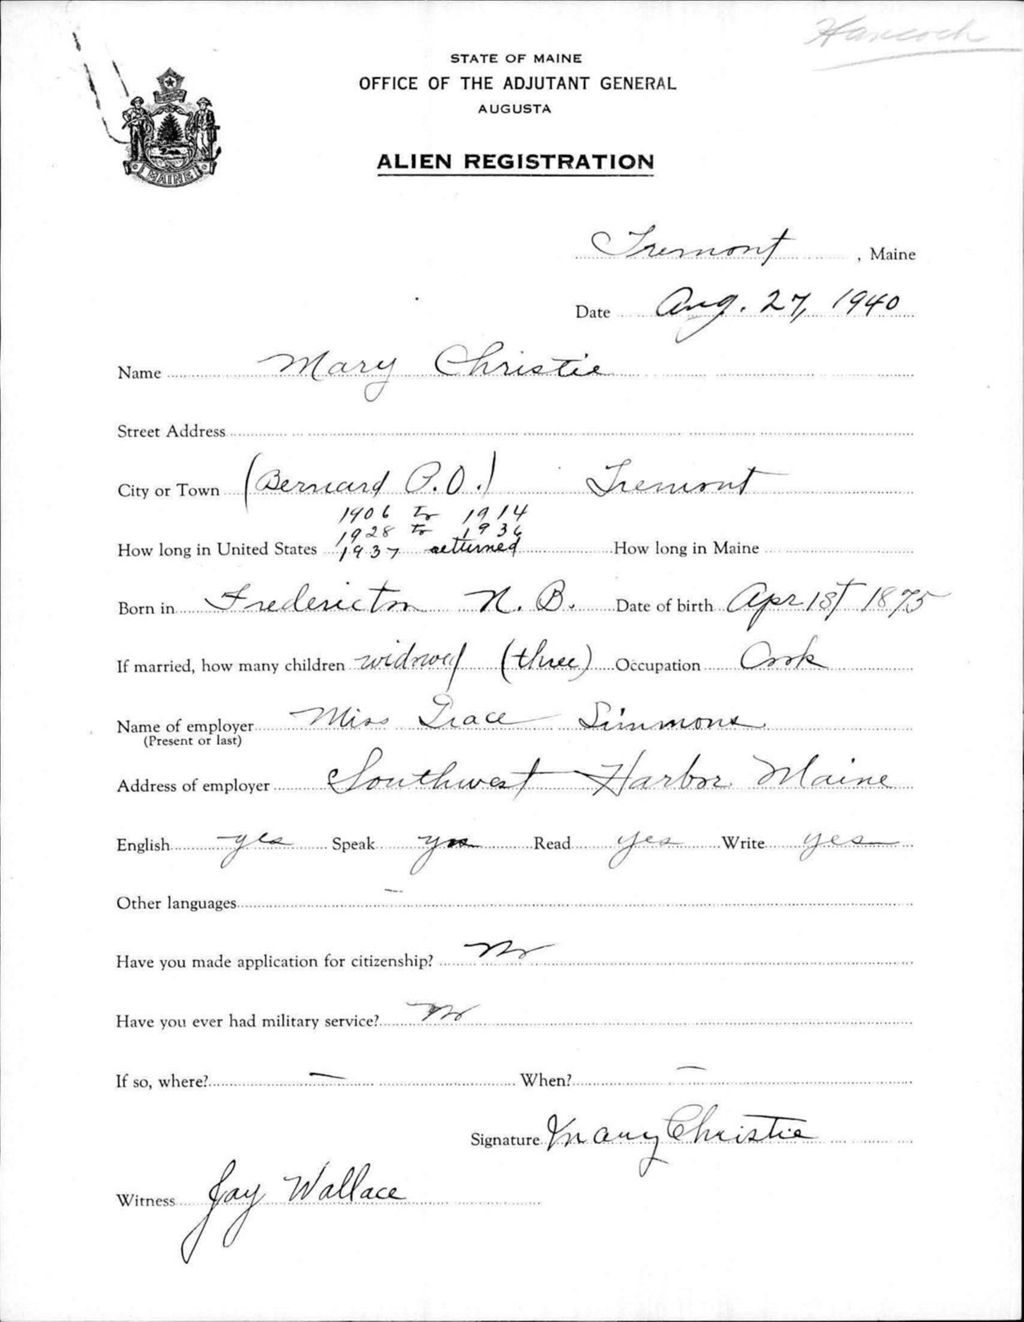 Hancock
STATE OF MAINE
OFFICE OF THE ADJUTANT GENERAL
AUGUSTA
ALIEN REGISTRATION
MAINE
Tremont, Maine
Date Aug. 27, 1940
Name Mary Christie
Street Address
City or Town (Bernard P.O.) Tremont
1906 to 1914
1928 to 1936
How long in United States 1937 returned How long in Maine
Born in Fredericton N.B. Date of birth Apr 1st 1875
If married, how many children widowed (three) Occupation Cook
Name of employer Miss Grace Simmons
(Present or last)
Address of employer Southwest Harbor Maine
English yes Speak yes Read yes Write yes
Other languages –
Have you made application for citizenship? No
Have you ever had military service? No
If so, where? – When? –
Signature Mary Christie
Witness Jay Wallace